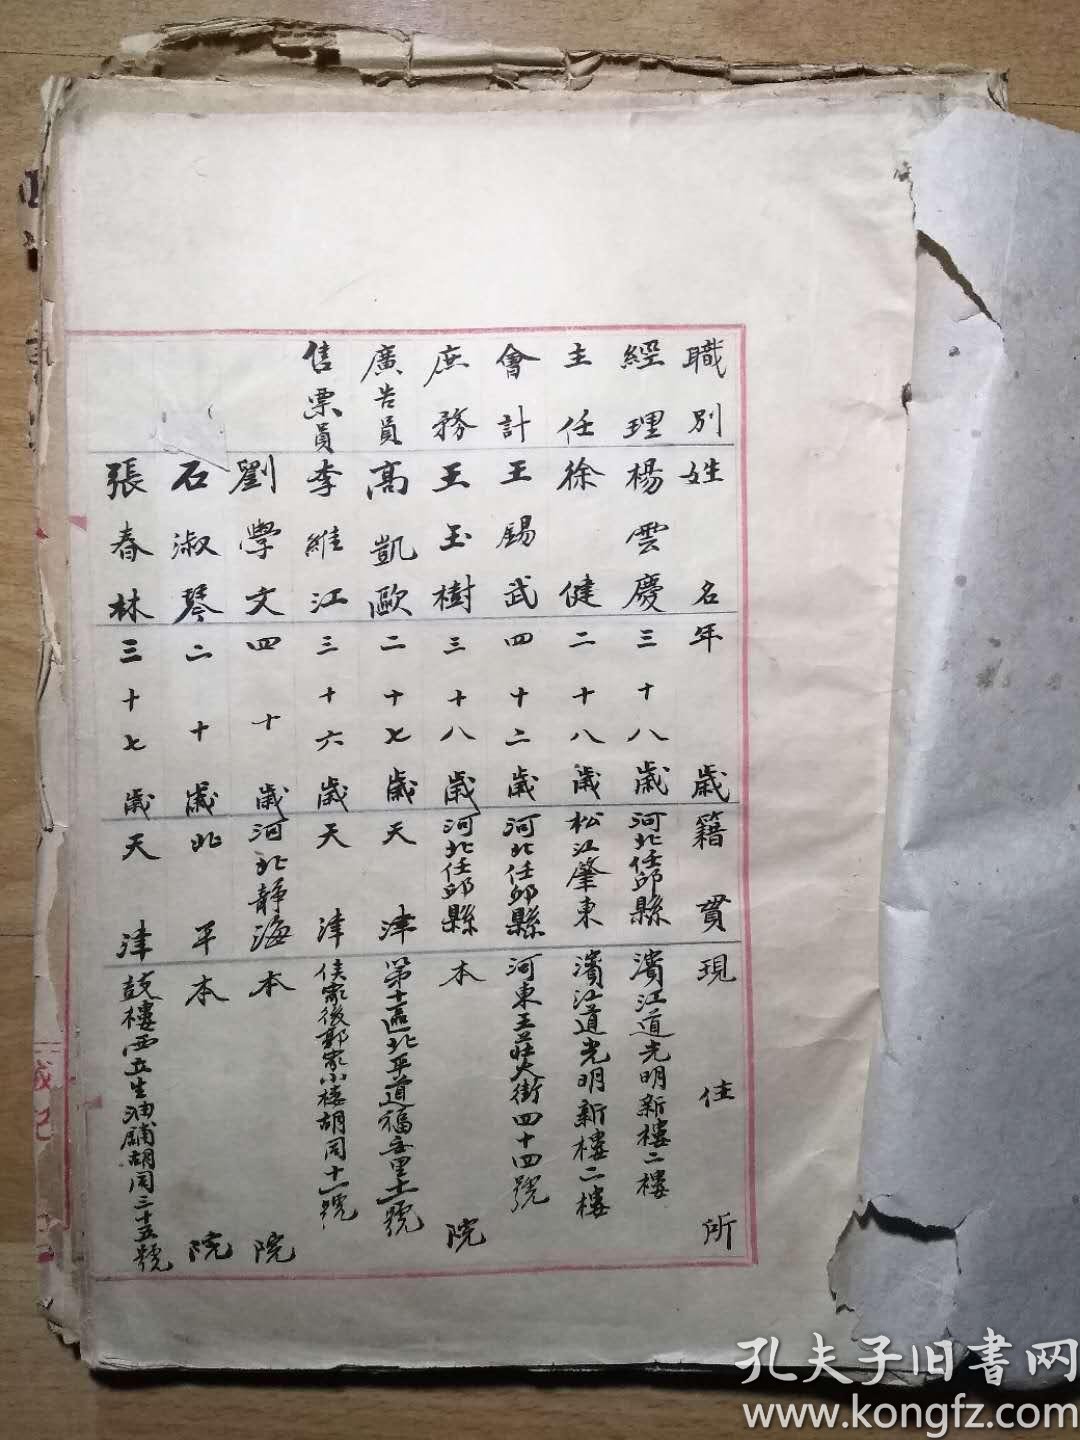 職別姓名年歲籍貫現住所
經理楊雲慶三十八歲河北任邱縣濱江道光明新樓二樓
主任徐健二十八歲松江肇東濱江道光明新樓二樓
會計王錫武四十二歲河北任邱縣河東王莊大街四十四號
庶務王玉樹三十八歲河北任邱縣本院
廣告員高凱歐二十七歲天津第十一區北平道福安里十一號
售票員李維江三十六歲天津侯家後郭家小樓胡同十一號
劉學文四十歲河北靜海本院
石淑琴二十歲北平本院
張春林三十七歲天津鼓樓西立生油鋪胡同三十五號
孔夫子旧書网
www.kongfz.com